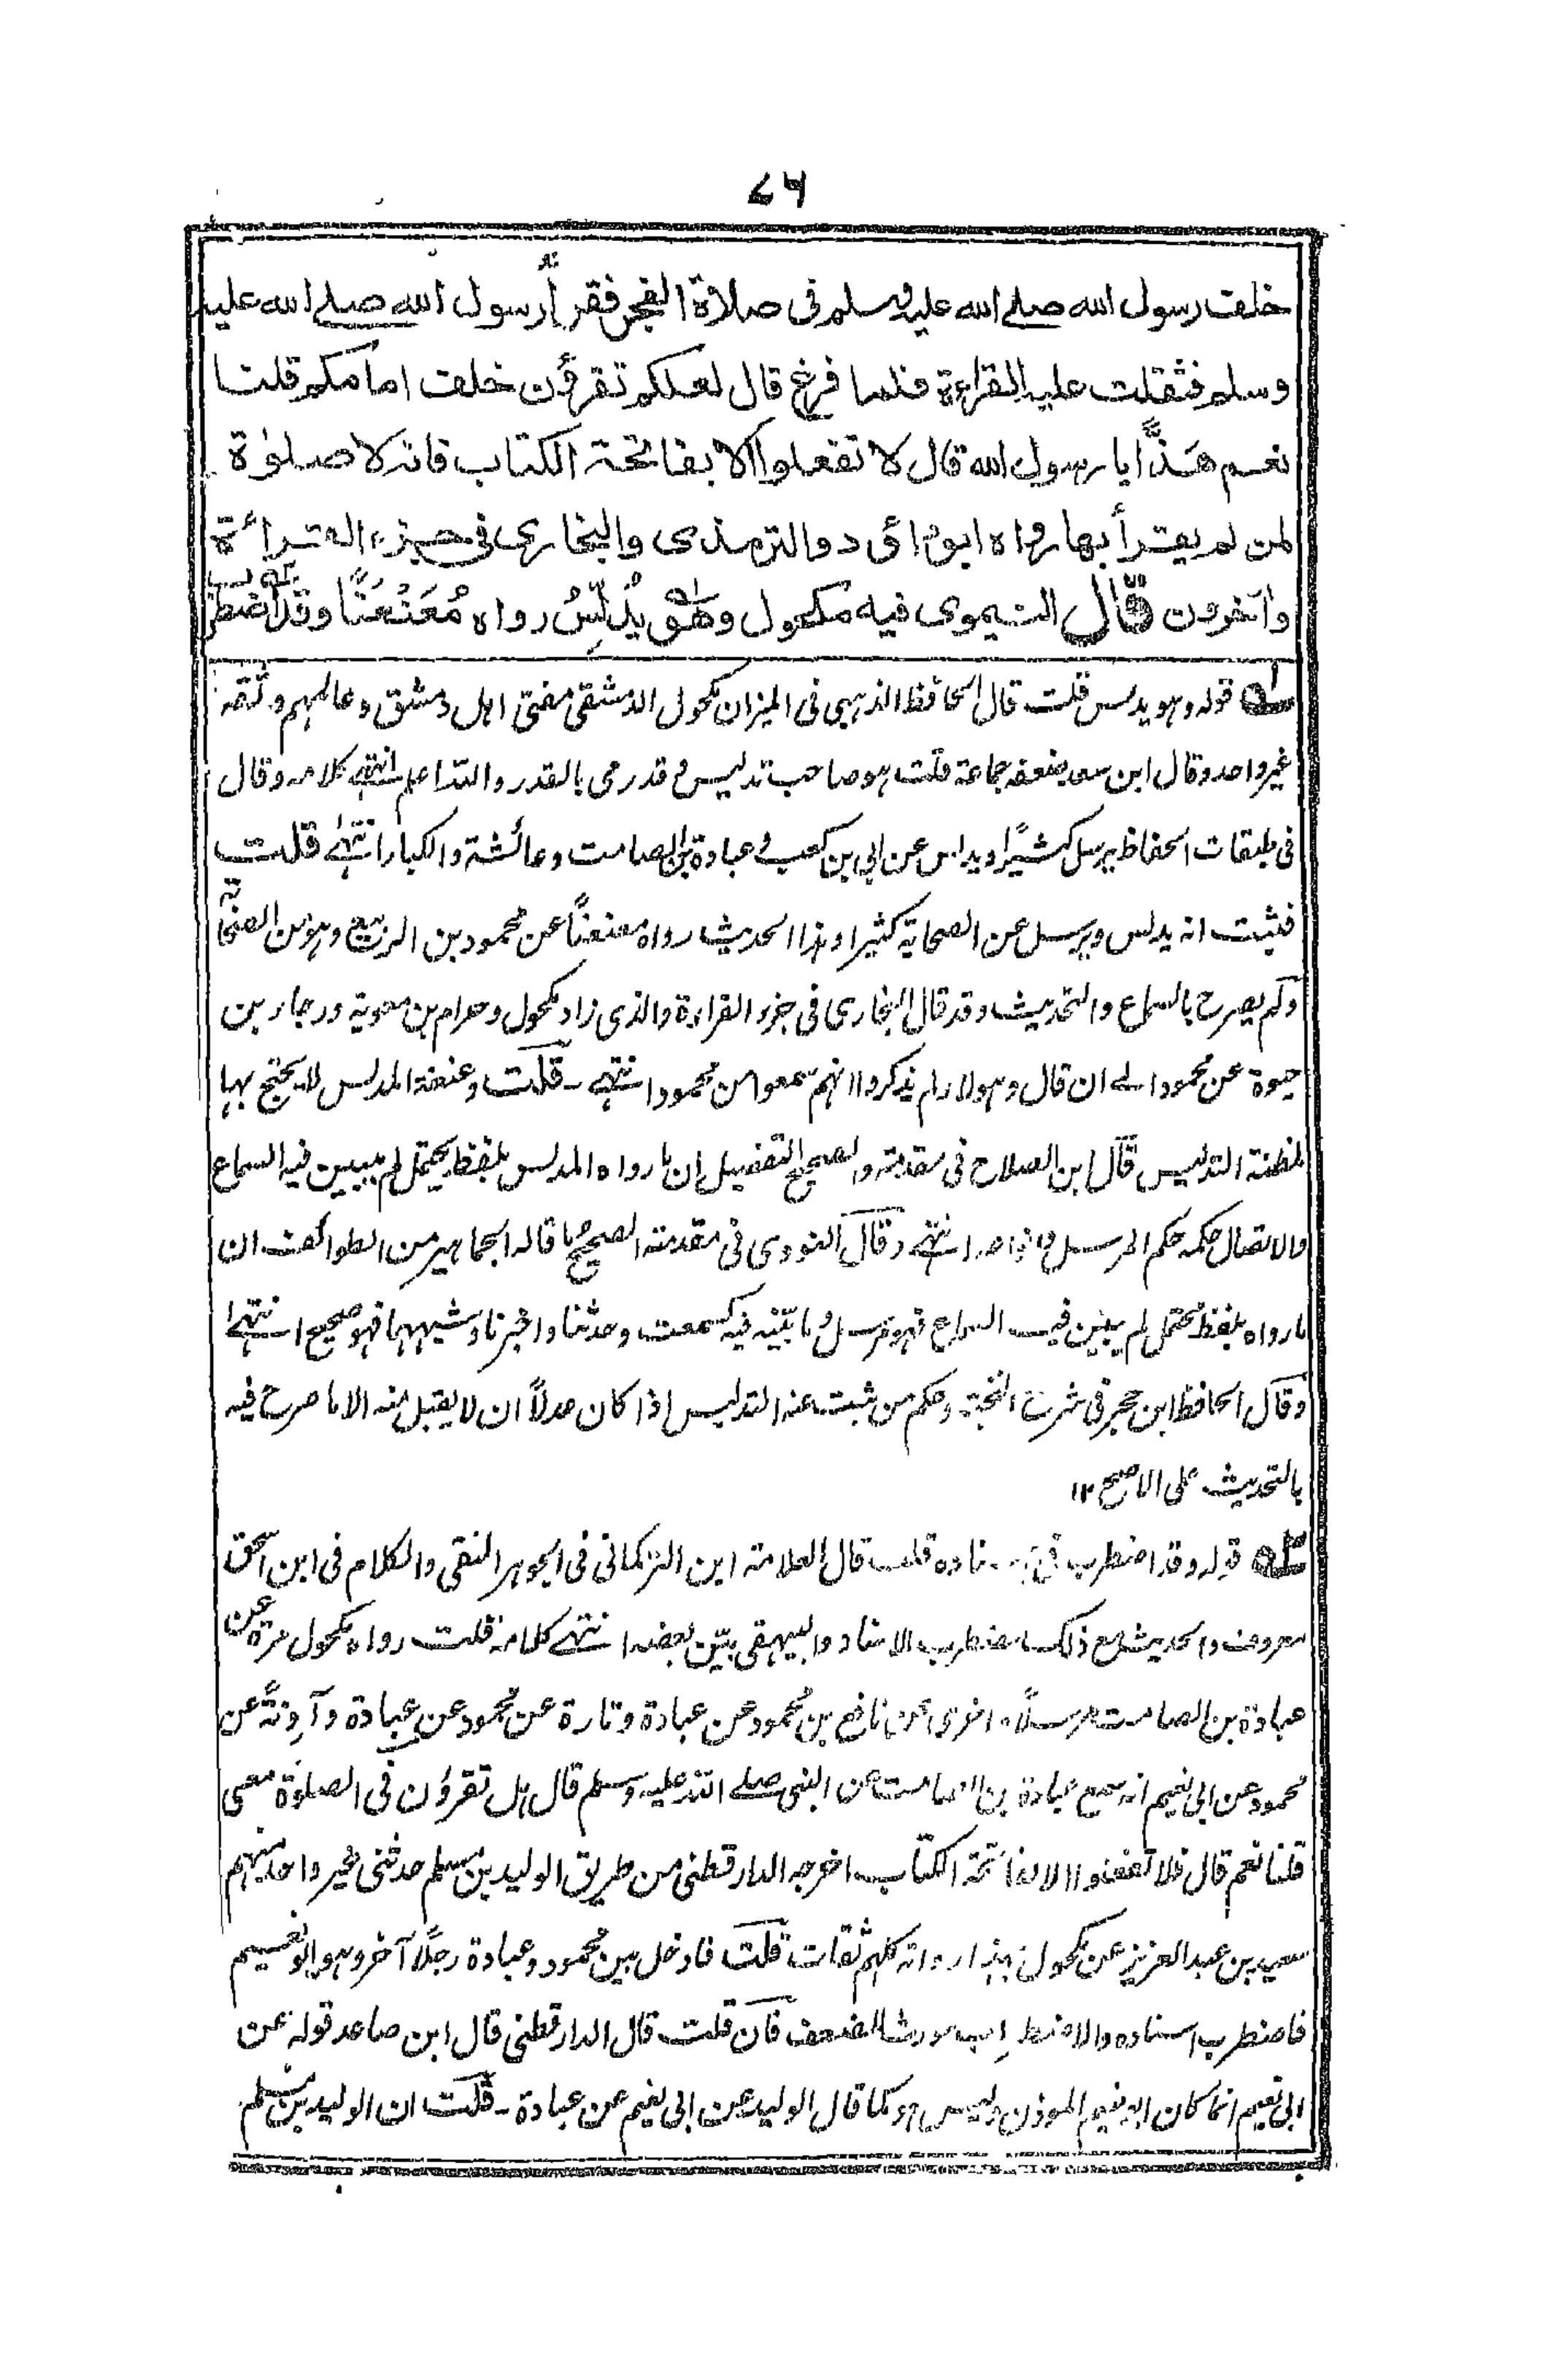 ٧٦
خلف رسول الله صلے الله عليه وسلم فى صلاة الفجر فقرأ رسول الله صلے الله عليه
وسلم فثقلت عليه القراءة فلما فرغ قال لعلكم تقرؤن خلف امامكم قلنا
نعم هذّا يا رسول الله قال لا تفعلوا الا بفاتحة الكتاب فانه لا صلوٰة
لمن لم يقرأ بها رواه ابوداؤد والترمذى والبخارى فى جزء القراءة
وآخرون قال النيموى فيه مكحول وهو يُدلِّسُ رواه مُعَنْعَنًا وقد اضطرب
له قوله وهو يدلس قلت قال الحافظ الذهبى فى الميزان مكحول الدمشقى مفتى اهل دمشق وعالمهم وثقه
غير واحد وقال ابن سعد ضعفه جماعة قلت هو صاحب تدليس وقد رمى بالقدر والله اعلم انتهے كلامه وقال
فى طبقات الحفاظ يرسل كثيرًا ويدلس عن ابى بن كعب وعبادة بن الصامت وعائشة والكبار انتهےٰ قلت
فثبت انه يدلس ويرسل عن الصحابة كثيرا وهذا الحديث رواه معنعنًا عن محمود بن الربيع وهو من الصحابة
ولم يصرح بالسماع والتحديث وقد قال البخارى فى جزء القراءة والذى زاد مكحول وحرام بن معوية ورجاء بن
حيوة عن محمود الے ان قال وهولاء لم يذكروا انهم سمعوا من محمود انتهے - قلت وعنعنة المدلس لا يحتج بها
لمظنة التدليس قال ابن الصلاح فى مقدمته والصحيح التفصيل ان ما رواه المدلس بلفظ يحتمل لم يبين فيه السماع
والاتصال حكمه حكم المرسل وانواعه انتهے وقال النووى فى مقدمته الصحيح ما قاله الجماهير من الطوائف ان
ما رواه بلفظ محتمل لم يبين فيه السماع فهو مرسل وما بيّنه فيه كسمعت وحدثنا واخبرنا وشبههما فهو صحيح انتهےٰ
وقال الحافظ ابن حجر فى شرح النخبة وحكم من ثبت عنه التدليس اذا كان عدلًا ان لا يقبل منه الا ما صرح فيه
بالتحديث على الاصح ١٢
قوله وقد اضطرب فى اسناده قلت قال العلامة ابن التركمانى فى الجوهر النقى والكلام فى ابن اسحق
معروف والحديث مع ذلك مضطرب الاسناد والبيهقى بيّن بعضه انتهے كلامه قلت رواه مكحول مرة عن
عبادة بن الصامت مرسلًا واخرى عن نافع بن محمود عن عبادة وتارة عن محمود عن عبادة وآونةً عن
محمود عن ابى نعيم انه سمع عبادة بن الصامت عن النبى صلے الله عليه وسلم قال هل تقرؤن فى الصلوٰة معى
قلنا نعم قال فلا تفعلوا الا بفاتحة الكتاب اخرجه الدارقطنى من طريق الوليد بن مسلم حدثنى غير واحد منهم
سعيد بن عبد العزيز عن مكحول بهذا رواته كلهم ثقات قلت فادخل بين محمود وعبادة رجلًا آخر وهو ابو نعيم
فاضطرب اسناده والاضطراب مورث الضعف فان قلت قال الدارقطنى قال ابن صاعد قوله عن
ابى نعيم انما كان ابو نعيم الموذن وليس هو كما قال الوليد عن ابى نعيم عن عبادة - قلت ان الوليد بن مسلم